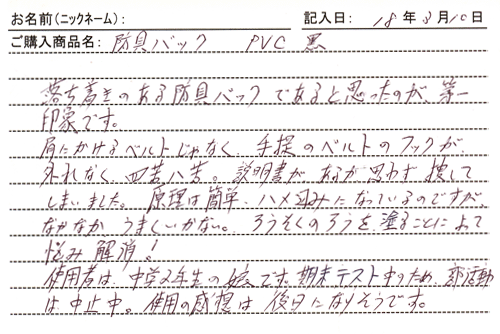 お名前(ニックネーム): 記入日: 18年3月10日
ご購入商品名: 防具バック PVC 黒
落ち着きのある防具バックであると思ったのが、第一
印象です。
肩にかけるベルトじゃなく、手提のベルトのフックが
外れなく、四苦八苦。説明書が、あるか思わず捜して
しまいました。原理は簡単、ハメ込みになっているのですが、
なかなかうまくいかない。ろうそくのろうを塗ることによって
悩み解消!
使用者は、中学2年生の娘です。期末テスト中のため、部活動
は中止中。使用の感想は後日になりそうです。